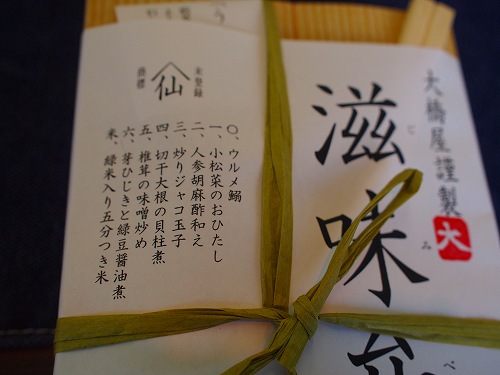 大橋屋謹製
大
滋味弁
じ
み
べ
未登録
仙
商標
〇、ウルメ鰯
一、小松菜のおひたし
二、人参胡麻酢和え
三、炒りジャコ玉子
四、切干大根の貝柱煮
五、椎茸の味噌炒め
六、芽ひじきと緑豆醤油煮
米、緑米入り五分つき米